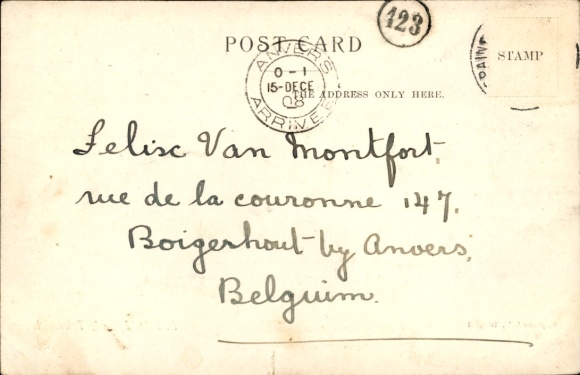 123
POST CARD
STAMP
ANVERS
0-1
15-DECE
08
ARRIVEE
THE ADDRESS ONLY HERE.
Felix Van Montfort,
rue de la couronne 147,
Boigerhout by Anvers,
Belguim.